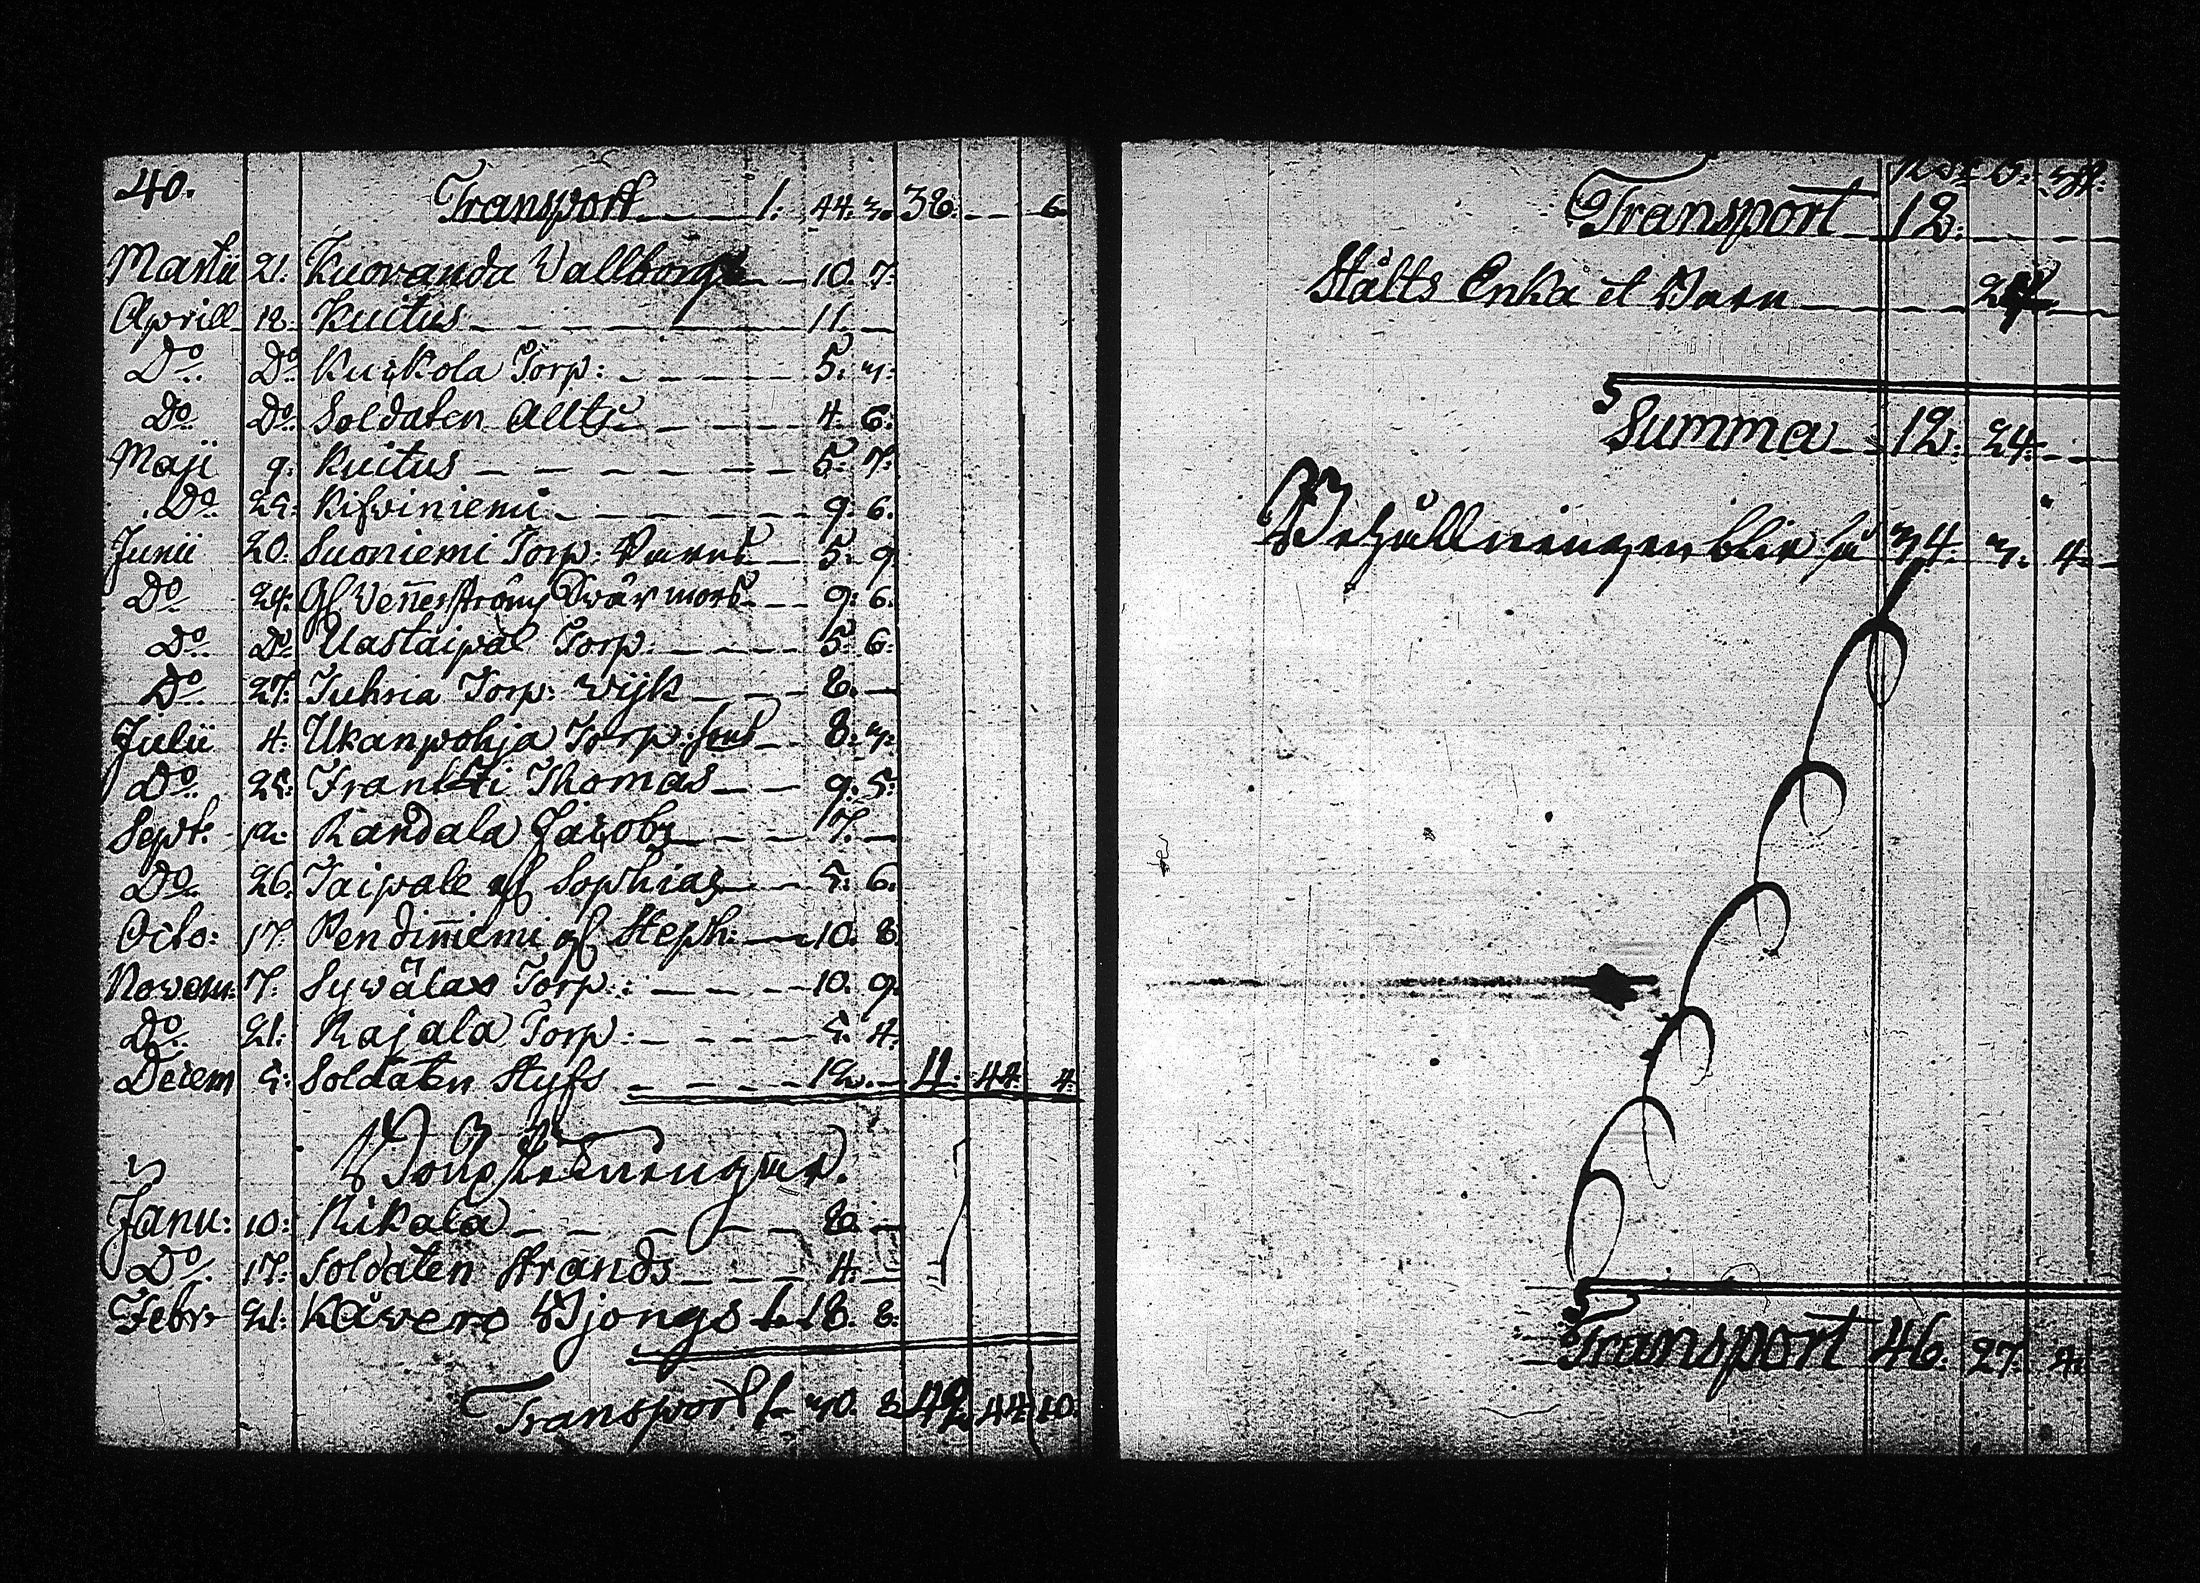 40.
Transport 1: 44. 3. 38. — 6.
Martii 21. Kuovanda Vallborgs 10. 7.
Aprill 18. Kuitus 11. —
Do Do Kuckola Torp: 5. 3.
Do Do Soldaten Allts 4. 6.
Maji 9. Kuitus 5. 7.
Do 25. Kifviniemi 9. 6.
Junii 20. Suoniemi Torp: Barns 5. 9
Do 24. Gl Wen̄erströms Swärmors 9. 6.
Do Do Uastaipal Torp. 5. 6.
Do 27. Juhria Torp: wijk 8. —
Julii 4. Ukanpohja Torp: 8. 3.
Do 25. Frantzi Thomas 9. 5.
Sept: 12. Randala Jacobs 7. —
Do 26. Taipale gl Sophias 5. 6.
Octo: 17. Pendin̄iemi gl Steph: 10. 8.
Novem: 7. Sywälax Torp: 10. 9.
Do 21. Rajala Torp: 5. 4.
Decem 5. Soldaten Styfs 12. — 4. 44. 4.
Janu: 10. Kikala 8. —
Do 17. Soldaten Strands 4. —
Febr 21. Käwero Bjongs 1. 18. 8.
Transport 1. 30. 8. 42. 44. 10.
Transport 12. —
Stålts Enka et Barn 24
Summa 12. 24. —
Behållningen blir så 34. 3. 4.
Transport 46. 27. 4.